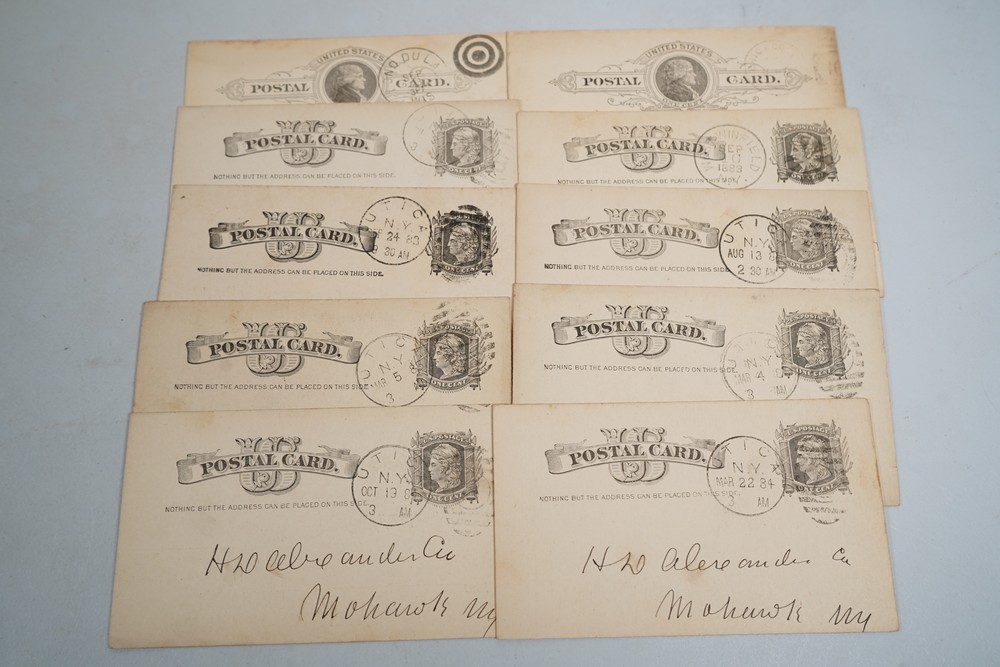 UNITED STATES
POSTAL CARD.
SEP
UNITED STATES
POSTAL CARD.
ONE CENT
U.S. POSTAL CARD.
ONE CENT
NOTHING BUT THE ADDRESS CAN BE PLACED ON THIS SIDE.
U.S. POSTAL CARD.
SEP
1883
N.Y.
ONE CENT
NOTHING BUT THE ADDRESS CAN BE PLACED ON THIS SIDE.
U.S. POSTAL CARD.
UTICA
N.Y.
24 83
30 AM
ONE CENT
NOTHING BUT THE ADDRESS CAN BE PLACED ON THIS SIDE.
U.S. POSTAL CARD.
UTIC
N.Y.
AUG 13 8
2 30 AM
ONE CENT
NOTHING BUT THE ADDRESS CAN BE PLACED ON THIS SIDE.
U.S. POSTAL CARD.
UTIC
N.Y.
MAR 5 8
3
U.S. POSTAGE
ONE CENT
NOTHING BUT THE ADDRESS CAN BE PLACED ON THIS SIDE
U.S. POSTAL CARD.
N.Y.
MAR 4
3 AM
U.S. POSTAGE
ONE CENT
NOTHING BUT THE ADDRESS CAN BE PLACED ON THIS SIDE.
U.S. POSTAL CARD.
UTIC
N.Y.
OCT 13 8
3 AM
U.S. POSTAGE
ONE CENT
NOTHING BUT THE ADDRESS CAN BE PLACED ON THIS SIDE.
H D Alexander Co
Mohawk NY
U.S. POSTAL CARD.
TIC
N.Y.
MAR 22 84
3 AM
U.S. POSTAGE
ONE CENT
NOTHING BUT THE ADDRESS CAN BE PLACED ON THIS SIDE.
H D Alexander Co
Mohawk NY